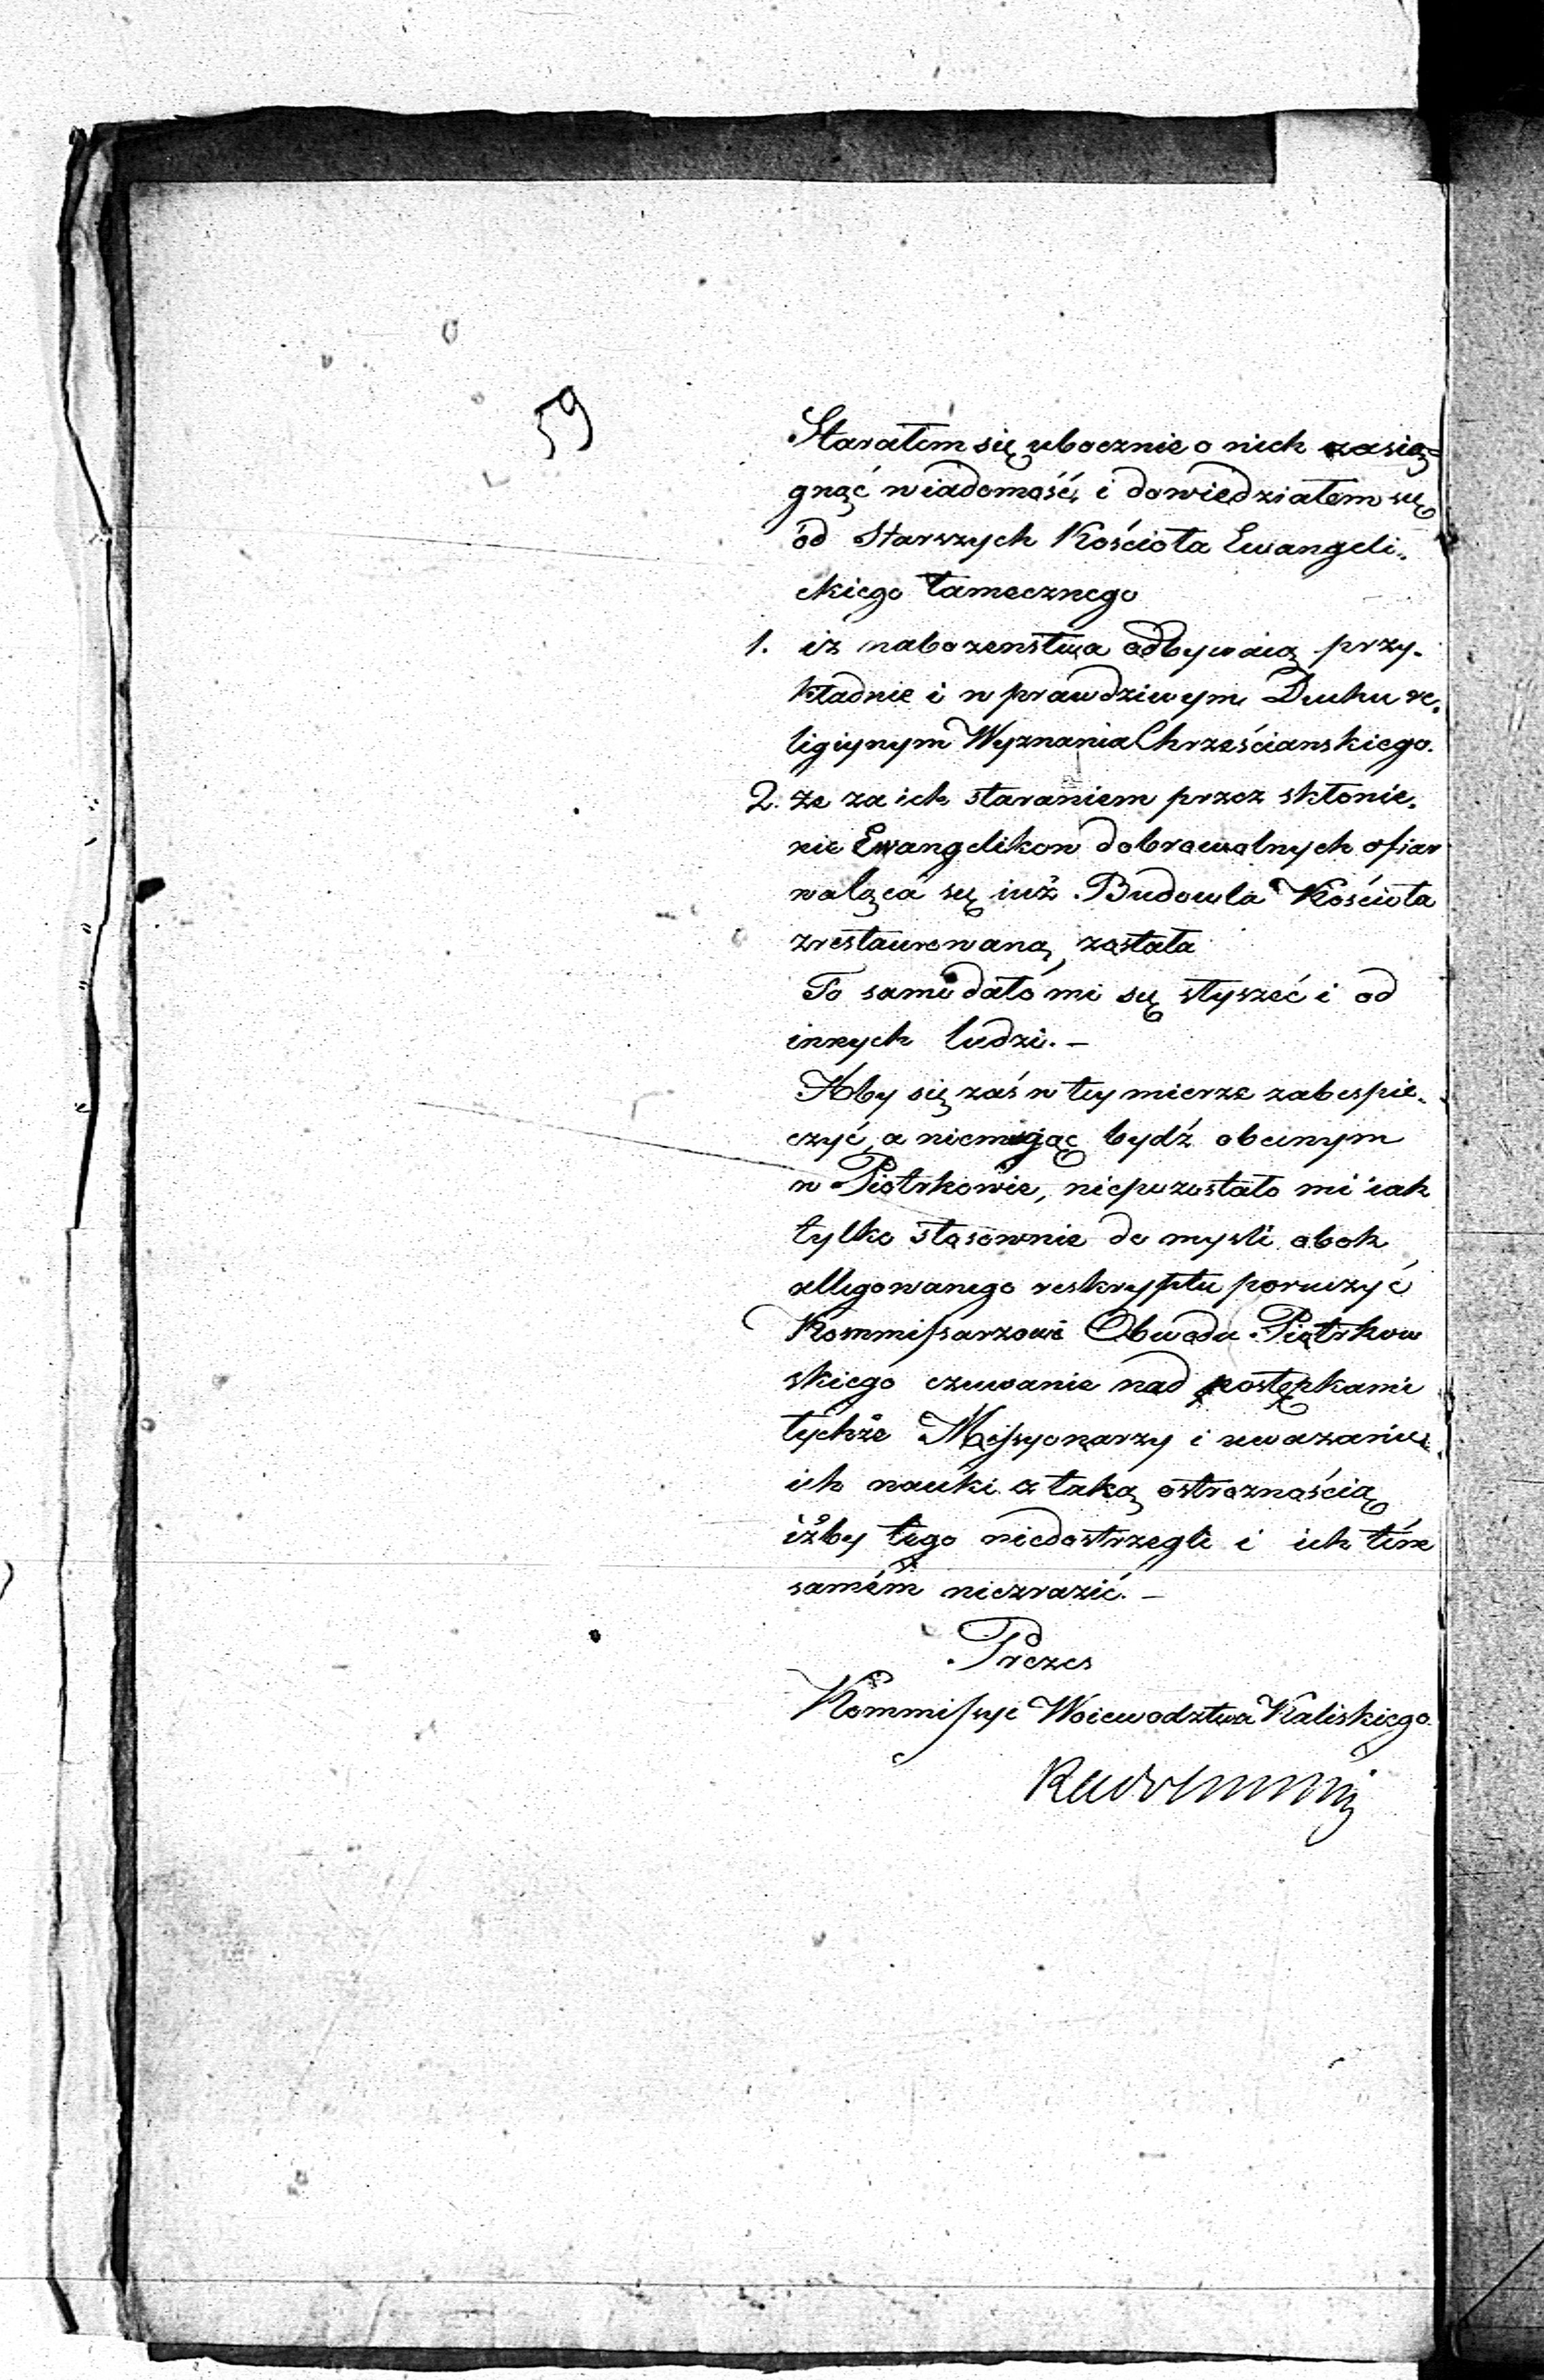 59
Starałem się ubocznie o nich zasią=
gnąć wiadomość, i dowiedziałem się
od Starszych Kościoła Ewangeli-
ckiego tamecznego
1. iz nabozenstwa odbywaią przy-
kładnie i w prawdziwym Duchu re-
ligiynym Wyznania Chrześcianskiego.
2. że za ich staraniem przez skłonie-
nie Ewangelikow dobrowolnych ofiar
waląca się iuż Budowla Kościoła
zrestaurowaną została
To samo dało mi się słyszeć i od
innych ludzi. —
Aby się zaś w tey mierze zabespie-
czyć, a niemogąc bydź obecnym
w Piotrkowie, niepozostało mi iak
tylko stosownie do mysli obok
allegowanego reskryptu poruczyć
Kommissarzowi Obwodu Piotrkow
skiego czuwanie nad postępkami
tychże Missyonarzy i uwazanie
ich nauki z taką ostroznością
iżby tego niedostrzegli i ich tém
samém niezrazić. —
Prezes
Kommissyi Woiewodztwa Kaliskiego.